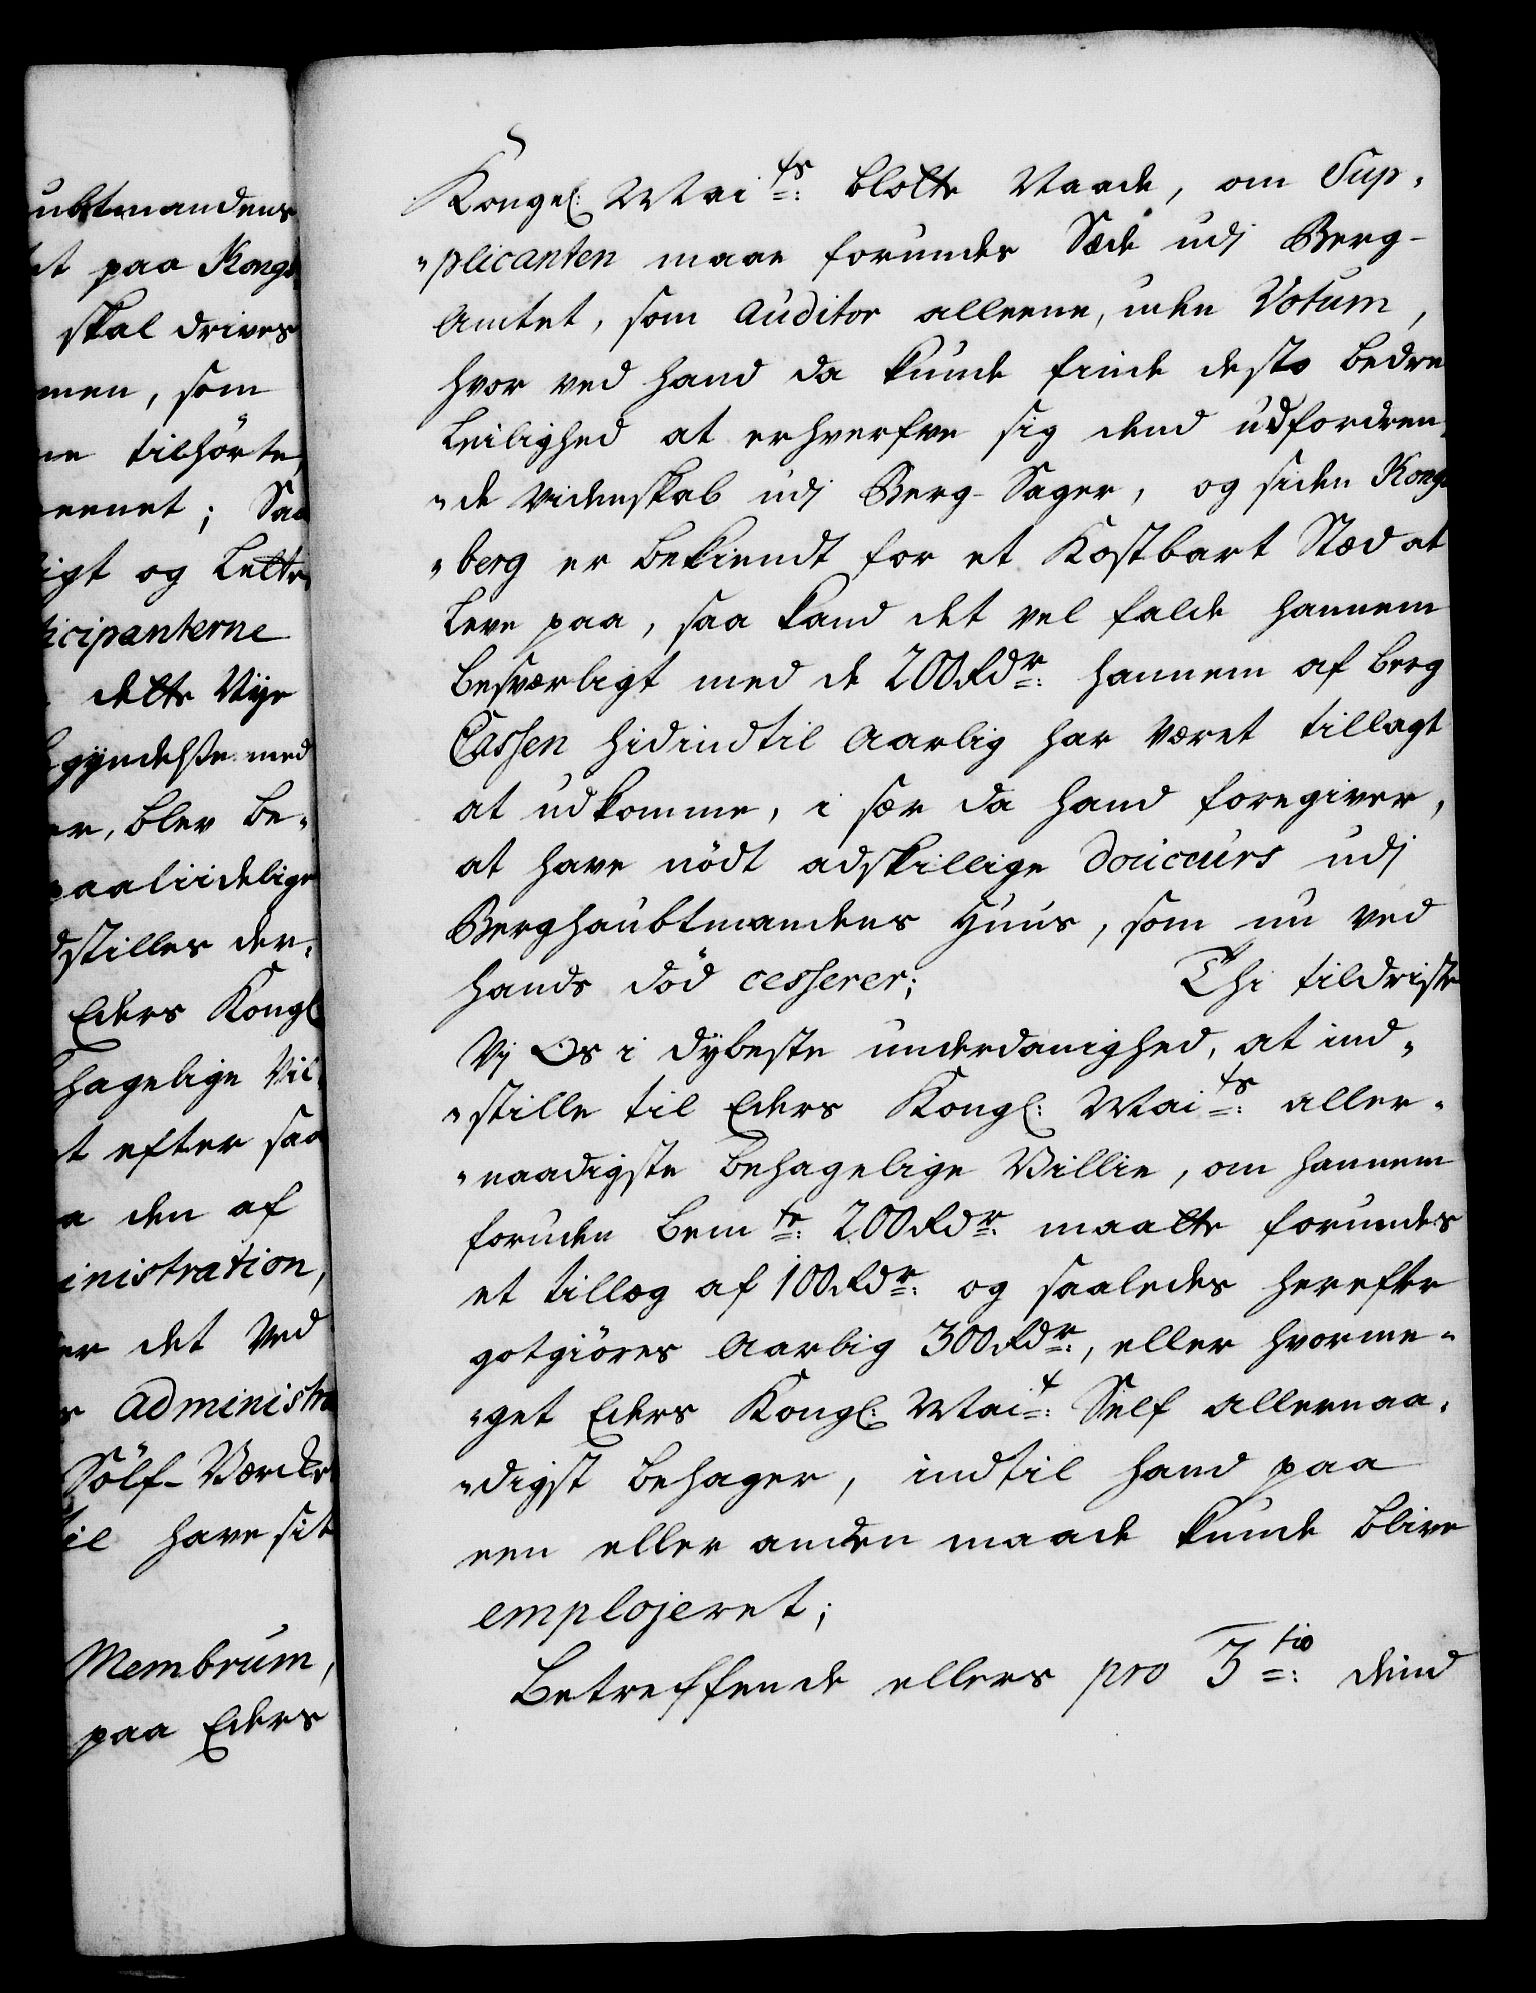 ubtmandens
et paa Kongs
skal drives
men, som
ne tilhörte,
eenet; Saa
igt og Lette
ticipanterne
dette Nye
gyndelse med
er, blev be-
paaliidelige
dstilles der-
Eders Kongl
hagelige Vil-
t efter saa
a den af
inistration,
er det Ved
s administra
Sölf-Værcke
til have sit
Membrum,
paa Eders
Kongel: Maits: blotte Naade, om Sup-
-plicanten maae forundes Sæde udj Berg-
Amtet, som Auditor alleene, uden Votum,
hvor ved hand da kunde finde desto bedre
Leilighed at erhverfve sig dend udfordren-
-de Videnskab udj Berg-Sager, og siden Kongs
-berg er bekiendt for et Kostbart Stæd at
Leve paa, saa kand det vel falde hannem
besværligt med de 200 Rdr: hannem af Berg
Cassen hidindtil Aarlig har været tillagt
at udkomme, i sær da hand foregiver,
at have nödt adskillige douceurs udj
Berghaubtmandens Huus, som nu ved
hands död cesserer; Thi tildriste
Vj Os i dybeste underdanighed, at ind-
-stille til Eders Kongl: Maits: aller-
-naadigste behagelige Villie, om hannem
foruden bemte: 200 Rdr: maatte forundes
et tillæg af 100 Rdr: og saaledes herefter
gotgiöres Aarlig 300 Rdr:, eller hvorme-
-get Eders Kongl: Mait: Self allernaa-
-digst behager, indtil hand paa
een eller anden maade kunde blive
emplojeret;
Betreffende ellers pro 3tio: dend